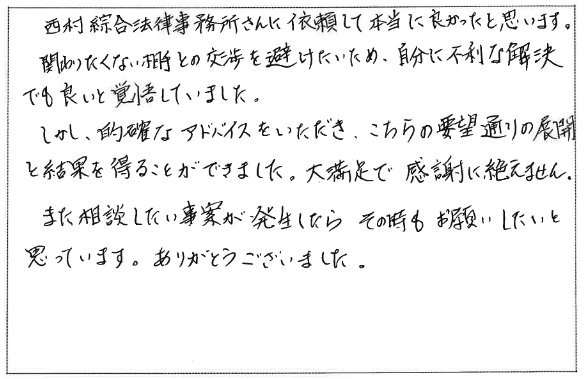 西村綜合法律事務所さんに依頼して本当に良かったと思います。
関わりたくない相手との交渉を避けたいため、自分に不利な解決
でも良いと覚悟していました。
しかし、的確なアドバイスをいただき、こちらの要望通りの展開
と結果を得ることができました。大満足で感謝に絶えません。
また相談したい事案が発生したらその時もお願いしたいと
思っています。ありがとうございました。